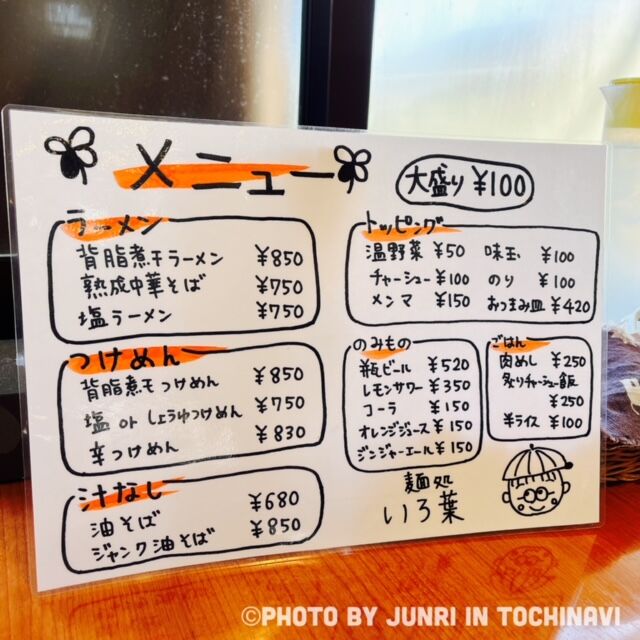 メニュー
大盛り ¥100
ラーメン
背脂煮干ラーメン ¥850
熟成中華そば ¥750
塩ラーメン ¥750
つけめん
背脂煮干つけめん ¥850
塩 or しょうゆつけめん ¥750
辛つけめん ¥830
汁なし
油そば ¥680
ジャンク油そば ¥850
トッピング
温野菜 ¥50 味玉 ¥100
チャーシュー ¥100 のり ¥100
メンマ ¥150 おつまみ皿 ¥420
のみもの
瓶ビール ¥520
レモンサワー ¥350
コーラ ¥150
オレンジジュース ¥150
ジンジャーエール ¥150
ごはん
肉めし ¥250
炙りチャーシュー飯
¥250
半ライス ¥100
麺処
いろ葉
©PHOTO BY JUNRI IN TOCHINAVI